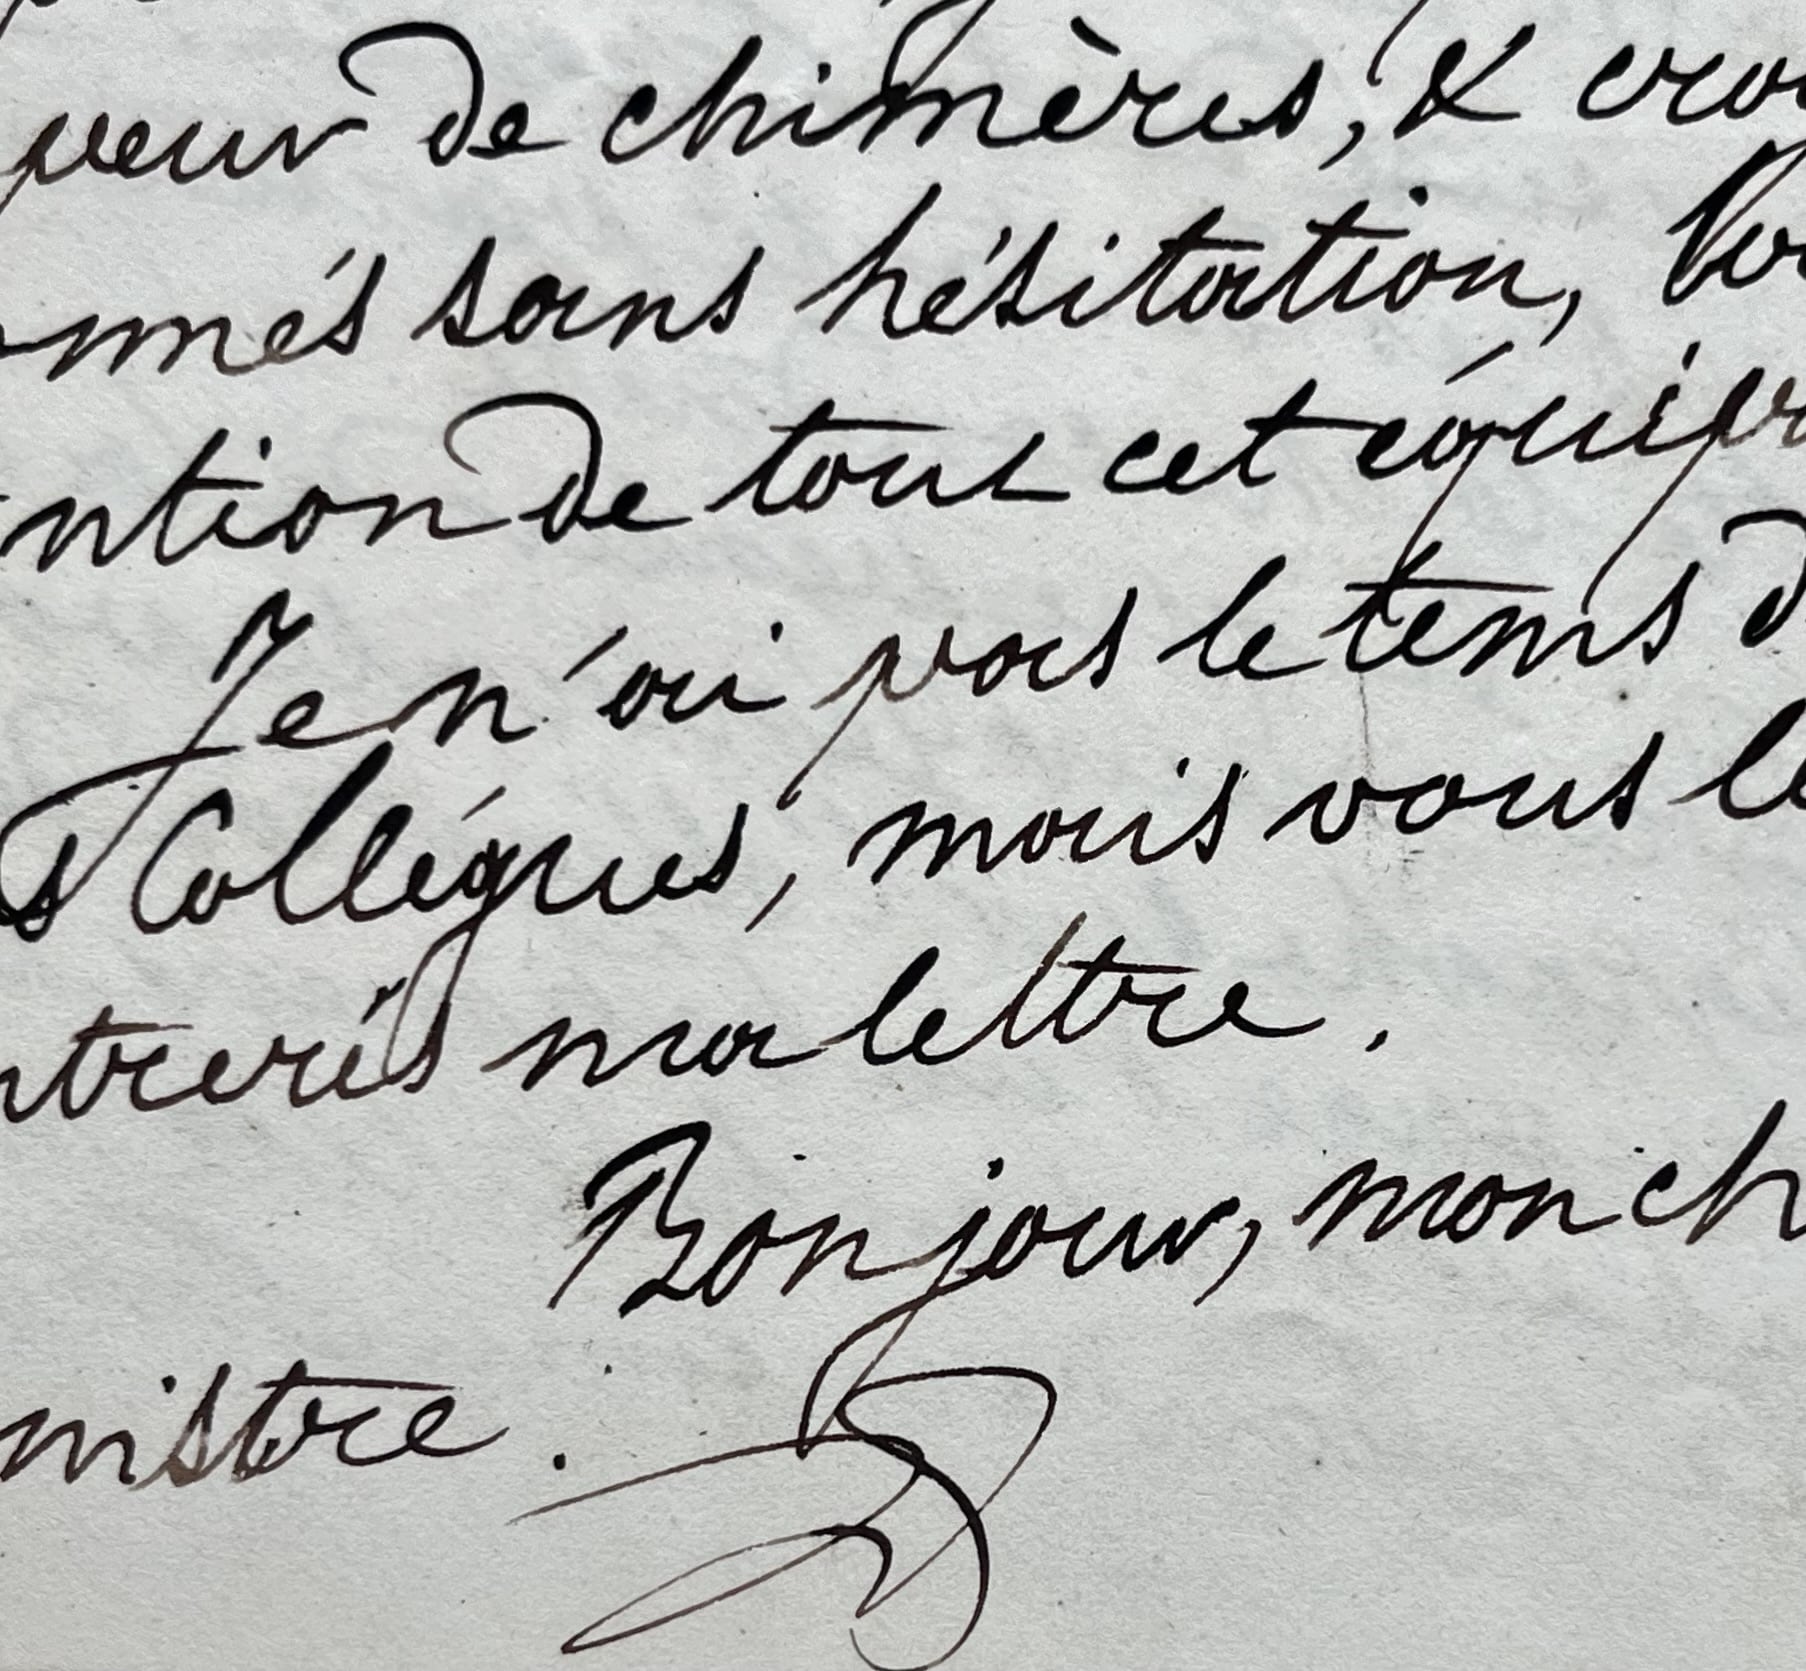 peur de chimères, & croi
onnés sans hésitation, Vo
ntion de tout cet équip
Je n'ai pas le tems d
s Collégues, mais vous le
ntrerés ma lettre.
Bonjour, mon ch
nistre.